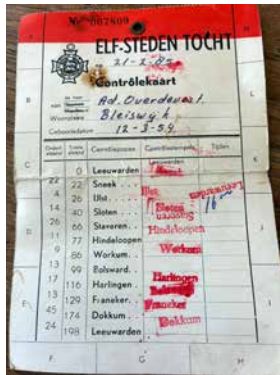 No 007809
ELF-STEDEN TOCHT
21-2-85
Contrôlekaart
Ad. Overdevest.
Woonplaats Bleiswijk
Geboortedatum 12-3-59
Onderl. afstand Totale afstand Contrôleposten Contrôlestempels Tijden
0 Leeuwarden Leeuwarden
22 22 Sneek
4 26 IJlst IJlst Leeuwarden
14 40 Sloten Sloten 16
26 66 Staveren Stavoren
11 77 Hindeloopen Hindeloopen
9 86 Workum Workum
13 99 Bolsward
17 116 Harlingen Harlingen
13 129 Franeker Franeker
45 174 Dokkum Dokkum
24 198 Leeuwarden
A
B
C
D
E
F G H